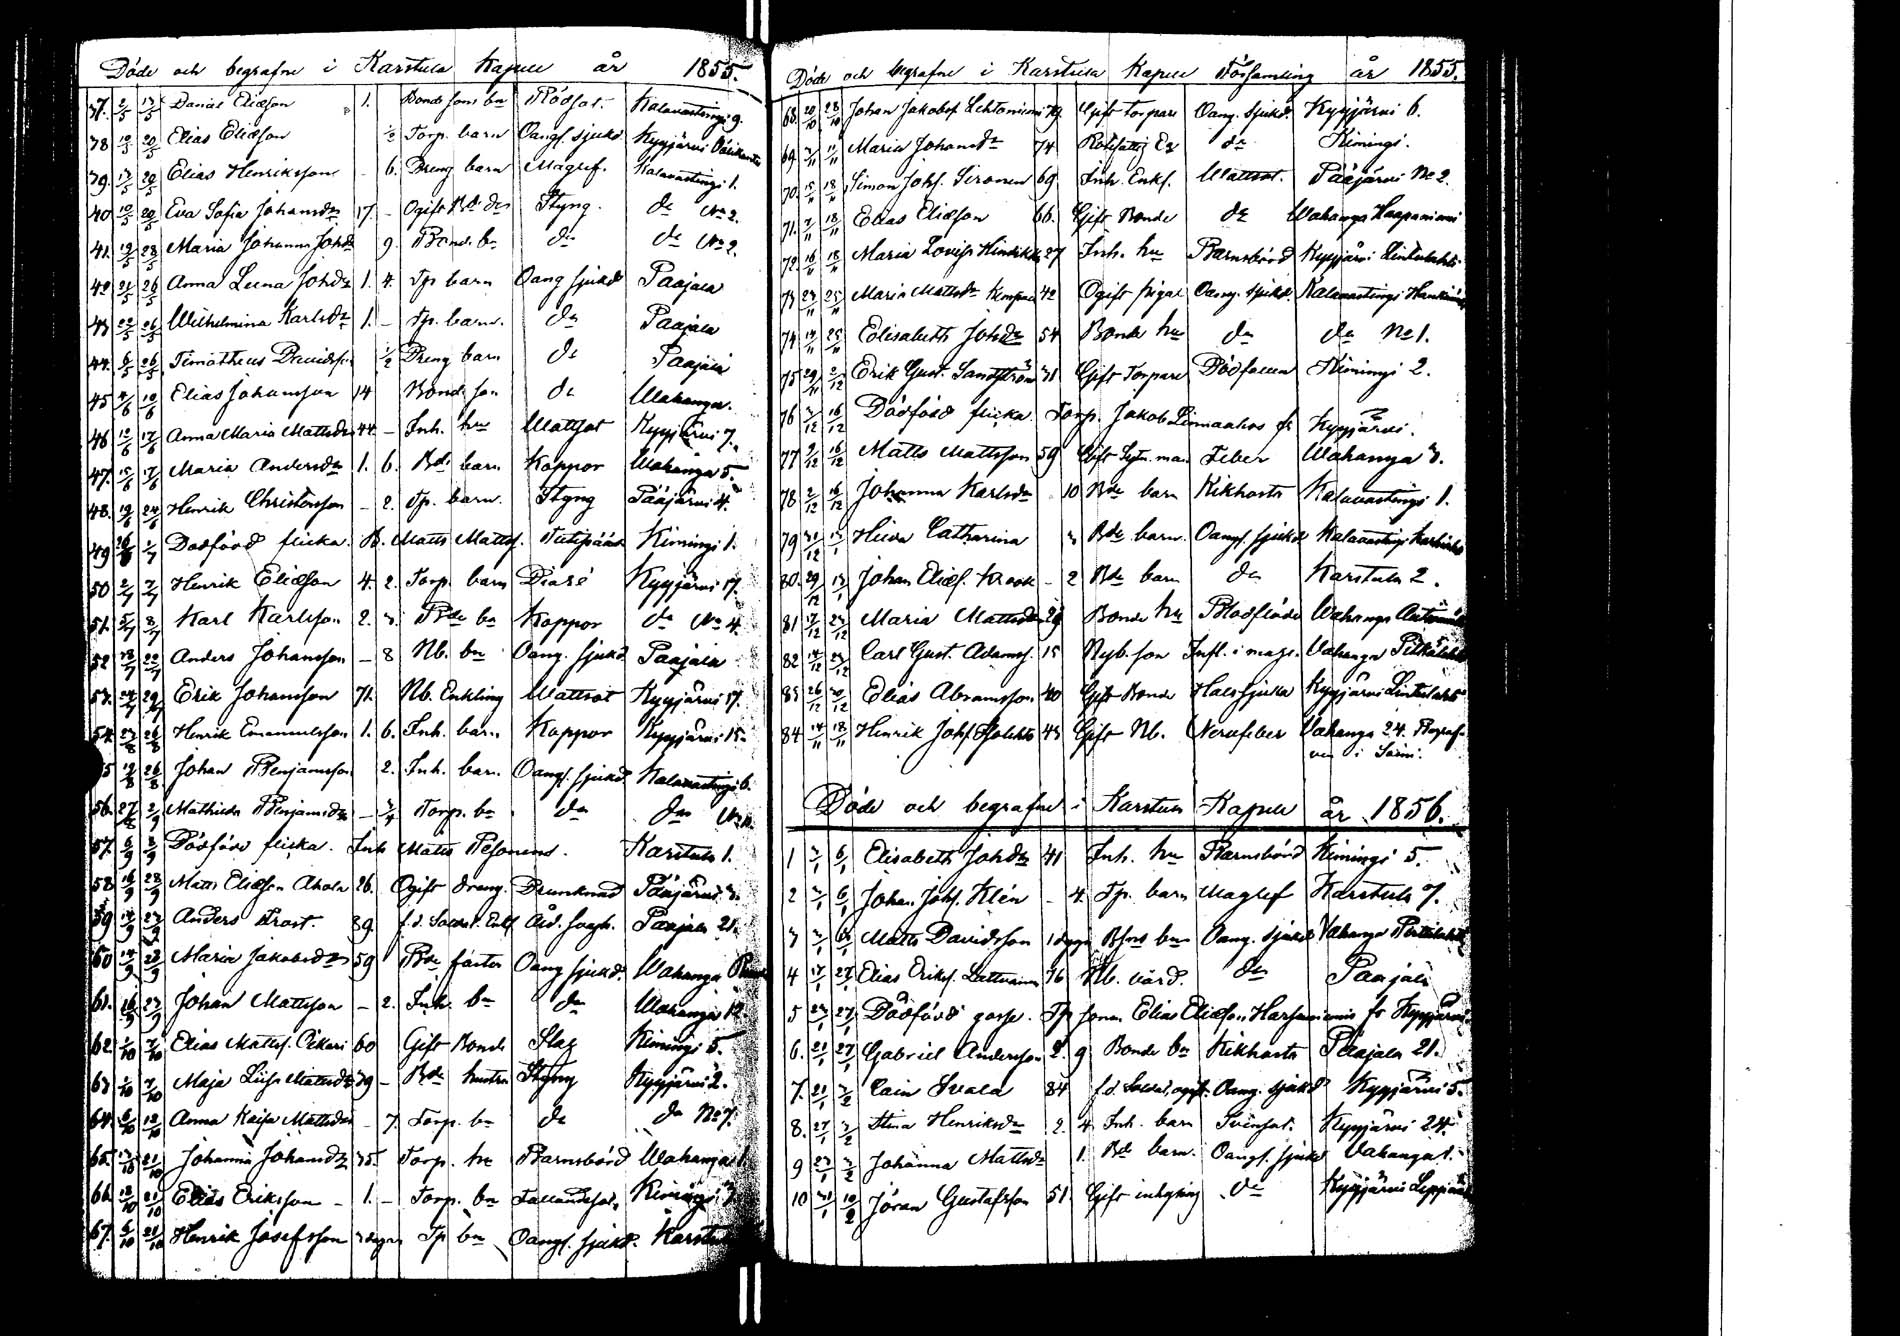 Döde och begrafne i Karstula Kapell år 1855.
37. 2/5 13/5 Daniel Eliæson 1. Bonds sons bn Rödsot. Kalavastingi 9.
38 10/5 20/5 Elias Eliæson 1/2 Torp. barn Oang. sjukd Kyyjärvi
39. 13/5 20/5 Elias Henriksson - 6. Dreng barn Magref. Kalavastingi 1.
40 10/5 20/5 Eva Sofia Johansdr 17. - Ogift Bd dr Styng. do No 2.
41. 19/5 28/5 Maria Johanna Johdr 9. Bond. bn do do No 2.
42 21/5 26/5 Anna Leena Johdr 1. 4. Tp barn Oang sjukd Paajala
43 22/5 26/5 Wilhelmina Karlsdr 1. - Tp. barn. do Paajala
44. 6/5 26/5 Timotheus Davidsson 1/2 Dreng barn do Paajala
45 4/6 10/6 Elias Johansson 14 Bond. son do Wahanga.
46 12/6 17/6 Anna Maria Mattsdr 44. - Inh. hu Wattsot Kyyjärvi 7.
47. 15/6 17/6 Maria Andersdr 1. 6. Bde barn Koppor Wahanga 5.
48. 19/6 24/6 Henrik Christersson - 2. Tp. barn. Styng Pääjärvi 4.
49 26/6 1/7 Dödfödd flicka. B. Matts Mattss. Kimingi 1.
50 2/7 7/7 Henrik Eliæson 4. 2. Torp. barn Diaré Kyyjärvi 17.
51. 5/7 8/7 Karl Karlsson 2. 3. Bde bn Koppor do No 4.
52 18/7 22/7 Anders Johansson - 8 Nb. bn Oang. sjukd Paajala
53. 24/7 29/7 Erik Johansson 71. Nb. Enkling Wattsot Kyyjärvi 17.
54. 23/8 26/8 Henrik Emanuelsson 1. 6. Inh. barn Koppor Kyyjärvi 15.
55 19/8 26/8 Johan Benjamsson 2. Inh. barn. Oang. sjukd. Kalavastingi 6.
56. 27/8 2/9 Mathilda Benjamsdr - 3/4 Torp. bn do do
57. 6/9 8/9 Dödfödd flicka. Inh Matts Pesonens. Karstula 1.
58 16/9 28/9 Matts Eliæson Ahola 26. Ogift dreng. Drunknad Pääjärvi 3.
59 14/9 23/9 Anders Trast. 89. f.d. Soldat. Enkl Åld. svagh. Paajala 21.
60 14/9 23/9 Maria Jakobsdr 59 Bde föster Oang sjukd. Wahanga
61. 16/9 23/9 Johan Mattsson - 2. Inh. bn do Wahanga 12.
62 1/10 7/10 Elias Mattss. Oikari 60 Gift Bonde Slag Kimingi 5.
63 1/10 7/10 Maja Liisa Mattsdr 39 - Bde hustru Styng Kyyjärvi 2.
64. 6/10 12/10 Anna Kaisa Mattsdr - 7. Torp. bn do do No 7.
65. 13/10 21/10 Johanna Johansdr 35. Torp. hu Barnsbörd Wahanga 1.
66. 12/10 21/10 Elias Eriksson - 1. - Torp. bn Fallandesot. Kimingi 7.
67. 6/10 21/10 Henrik Josefsson 3 dagar Tp bn Oang. sjukd. Karstula
Döde och begrafne i Karstula Kapell Församling år 1855.
68. 20/10 28/10 Johan Jakobss Lehtoniemi 79. Gift torpare Oang. sjukd. Kyyjärvi 6.
69. 3/11 11/11 Maria Johansdr 74 Rotefattig Ea do Kimingi.
70. 15/11 18/11 Simon Johss. Sironen 69. Inh. Enkl. Wattsot. Pääjärvi No 2.
71. 7/11 18/11 Elias Eliæson 66. Gift Bonde do Wahanga Haapaniemi
72. 16/11 18/11 Maria Lovisa Hindriksdr 27 Inh. hu Barnsbörd Kyyjärvi Lintulahti
73 23/11 25/11 Maria Mattsdr 42 Ogift pigan Oang. sjukd. Kalavastingi
74 17/11 25/11 Elisabeth Johsdr 54 Bonde hu do do No 1.
75 29/11 2/12 Erik Gust. Sandström 31 Gift Torpare Dödfallen Kimingi 2.
76 3/12 16/12 Dödfödd flicka. Torp. Jakob Linnaahos fr Kyyjärvi.
77 9/12 16/12 Matts Mattsson 59 Gift Feber Wahanga 3.
78 2/12 16/12 Johanna Karlsdr 10 Bde barn Kikhosta Kalavastingi 1.
79 31/12 13/1 Heeva Catharina 3 Bde barn. Oang. sjukd Kalavastingi
80. 29/12 13/1 Johan Eliæs. Krook - 2 Bde barn do Karstula 2.
81 17/12 23/12 Maria Mattsdr 29 Bonde hu Blodflöde Wahanga
82 14/12 23/12 Carl Gust. Adamss. 15 Nyb. son Infl. i mage. Vahanga Pitkälahti
83 26/12 30/12 Elias Abramsson 40 Gift Bonde Halssjuka Kyyjärvi Lintulahti
84 14/11 18/11 Henrik Johss 43 Gift Nb. Nervfeber Vahanga 24. Begraf-
ven i Saími.
Döde och begrafne i Karstula Kapell år 1856.
1 3/1 6/1 Elisabeth Johdr 41 Inh. hu Barnsbörd Kimingi 5.
2 3/1 6/1 Johan Johss. Klén - 4. Tp. barn Magref Karstula 7.
3 3/1 6/1 Matts Davidsson 1 dygn Bsons bn Oang. sjukd Vahanga
4 17/1 27/1 Elias Erikss. Lattvanen 76 Nb. värd. do Paajala
5 23/1 27/1 Dödfödd gosse. Tp sonen Elias Eliæson Harsuniemis fr Kyyjärvi
6. 21/1 27/1 Gabriel Andersson 2. 9 Bonde bn Kikhosta Paajala 21.
7. 21/1 3/2 Cain Svala 84 f.d. Soldat, ogift. Oang. sjukd Kyyjärvi 5.
8. 27/1 3/2 Stina Henriksdr 2. 4. Inh. barn Svinsot. Kyyjärvi 24.
9 23/1 3/2 Johanna Mattsdr 1. Bde barn. Oang. sjukd Vahanga 1.
10 31/1 10/2 Jöran Gustafsson 51. Gift inhysing do Kyyjärvi